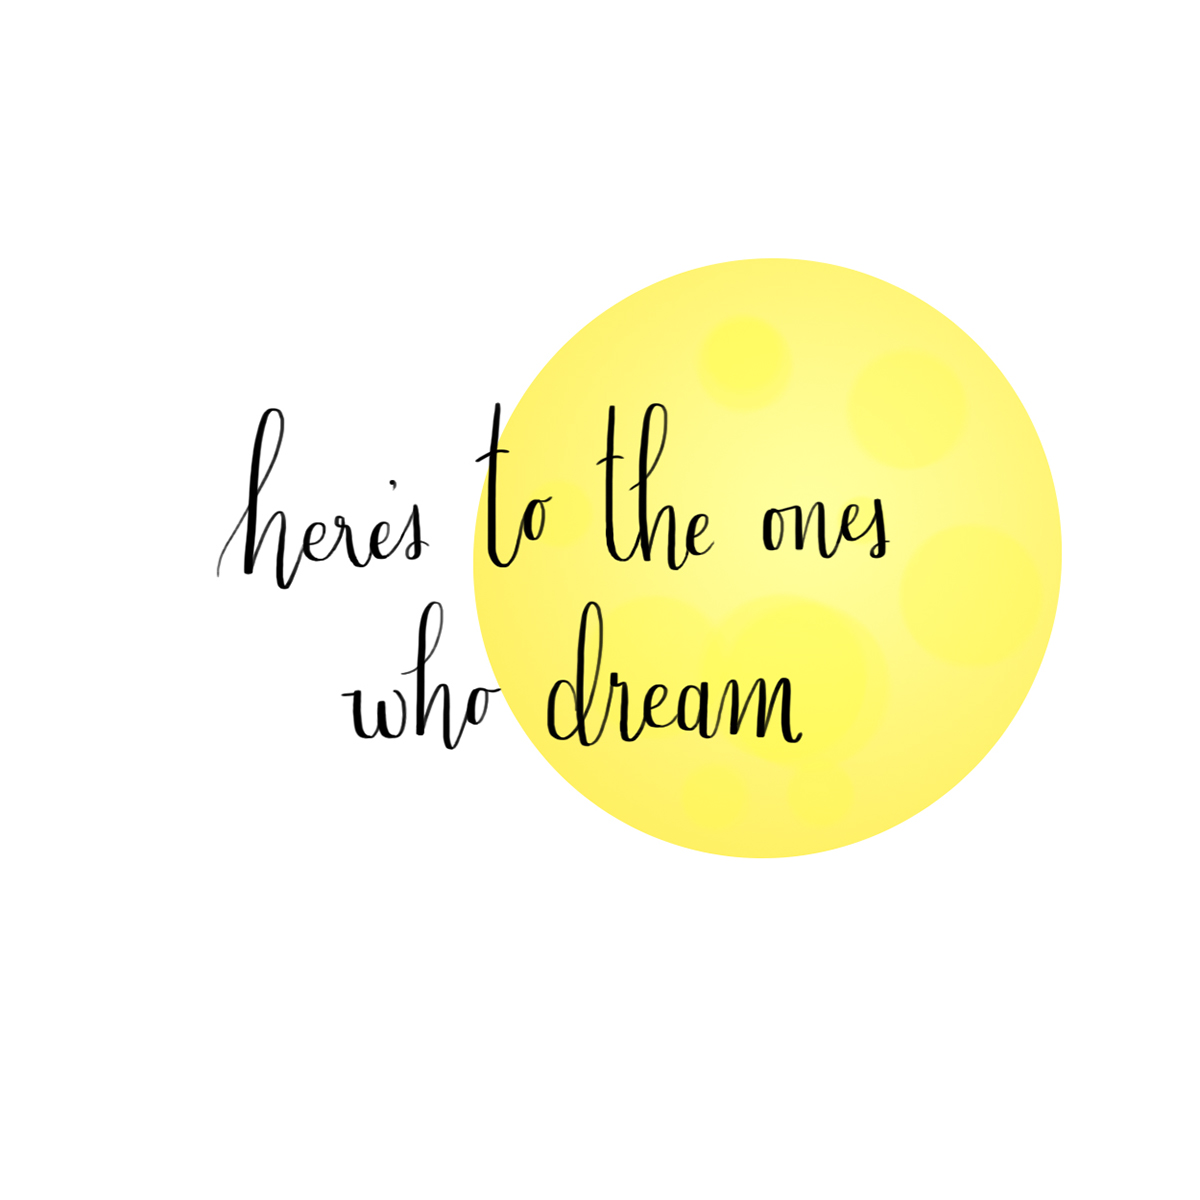 here's to the ones
who dream